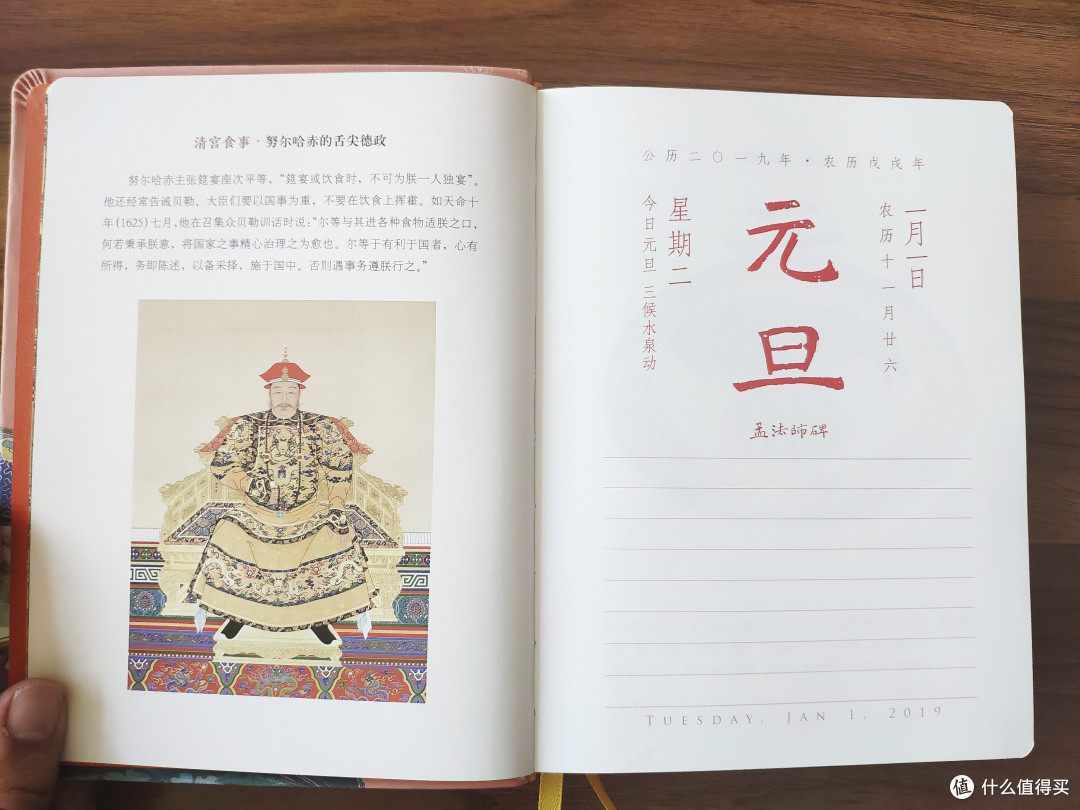 清宫食事·努尔哈赤的舌尖德政
努尔哈赤主张筵宴座次平等，“筵宴或饮食时，不可为朕一人独宴”。
他还经常告诫贝勒、大臣们要以国事为重，不要在饮食上挥霍。如天命十
年(1625)七月，他在召集众贝勒训话时说：“尔等与其进各种食物适朕之口，
何若秉承朕意，将国家之事精心治理之为愈也。尔等于有利于国者，心有
所得，务即陈述，以备采择，施于国中。否则遇事务遵朕行之。”
公历二〇一九年·农历戊戌年
一月一日
农历十一月廿六
元旦
孟法师碑
星期二
今日元旦 三候水泉动
TUESDAY, JAN 1, 2019
值 什么值得买